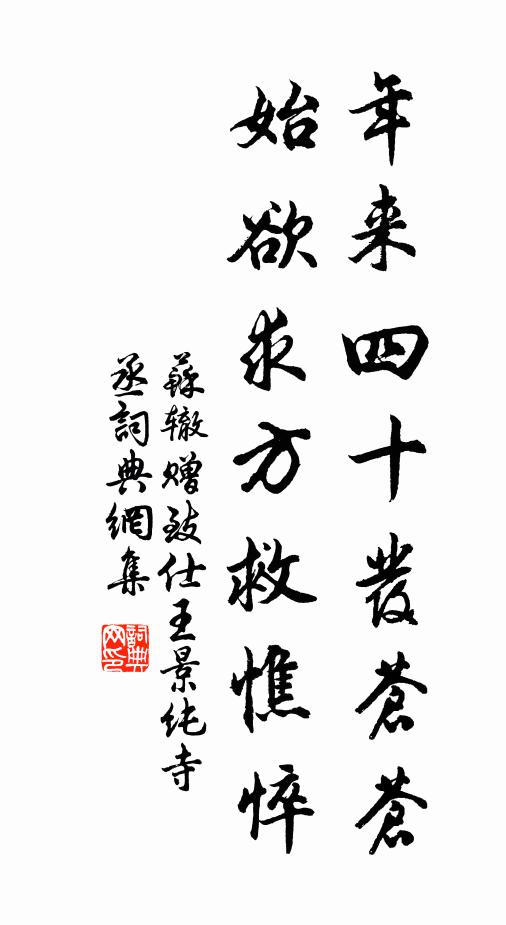 年来四十发苍苍
始欲求方救憔悴
蘇辙赠致仕王景纯寺
丞詞典網集
詞典
网印